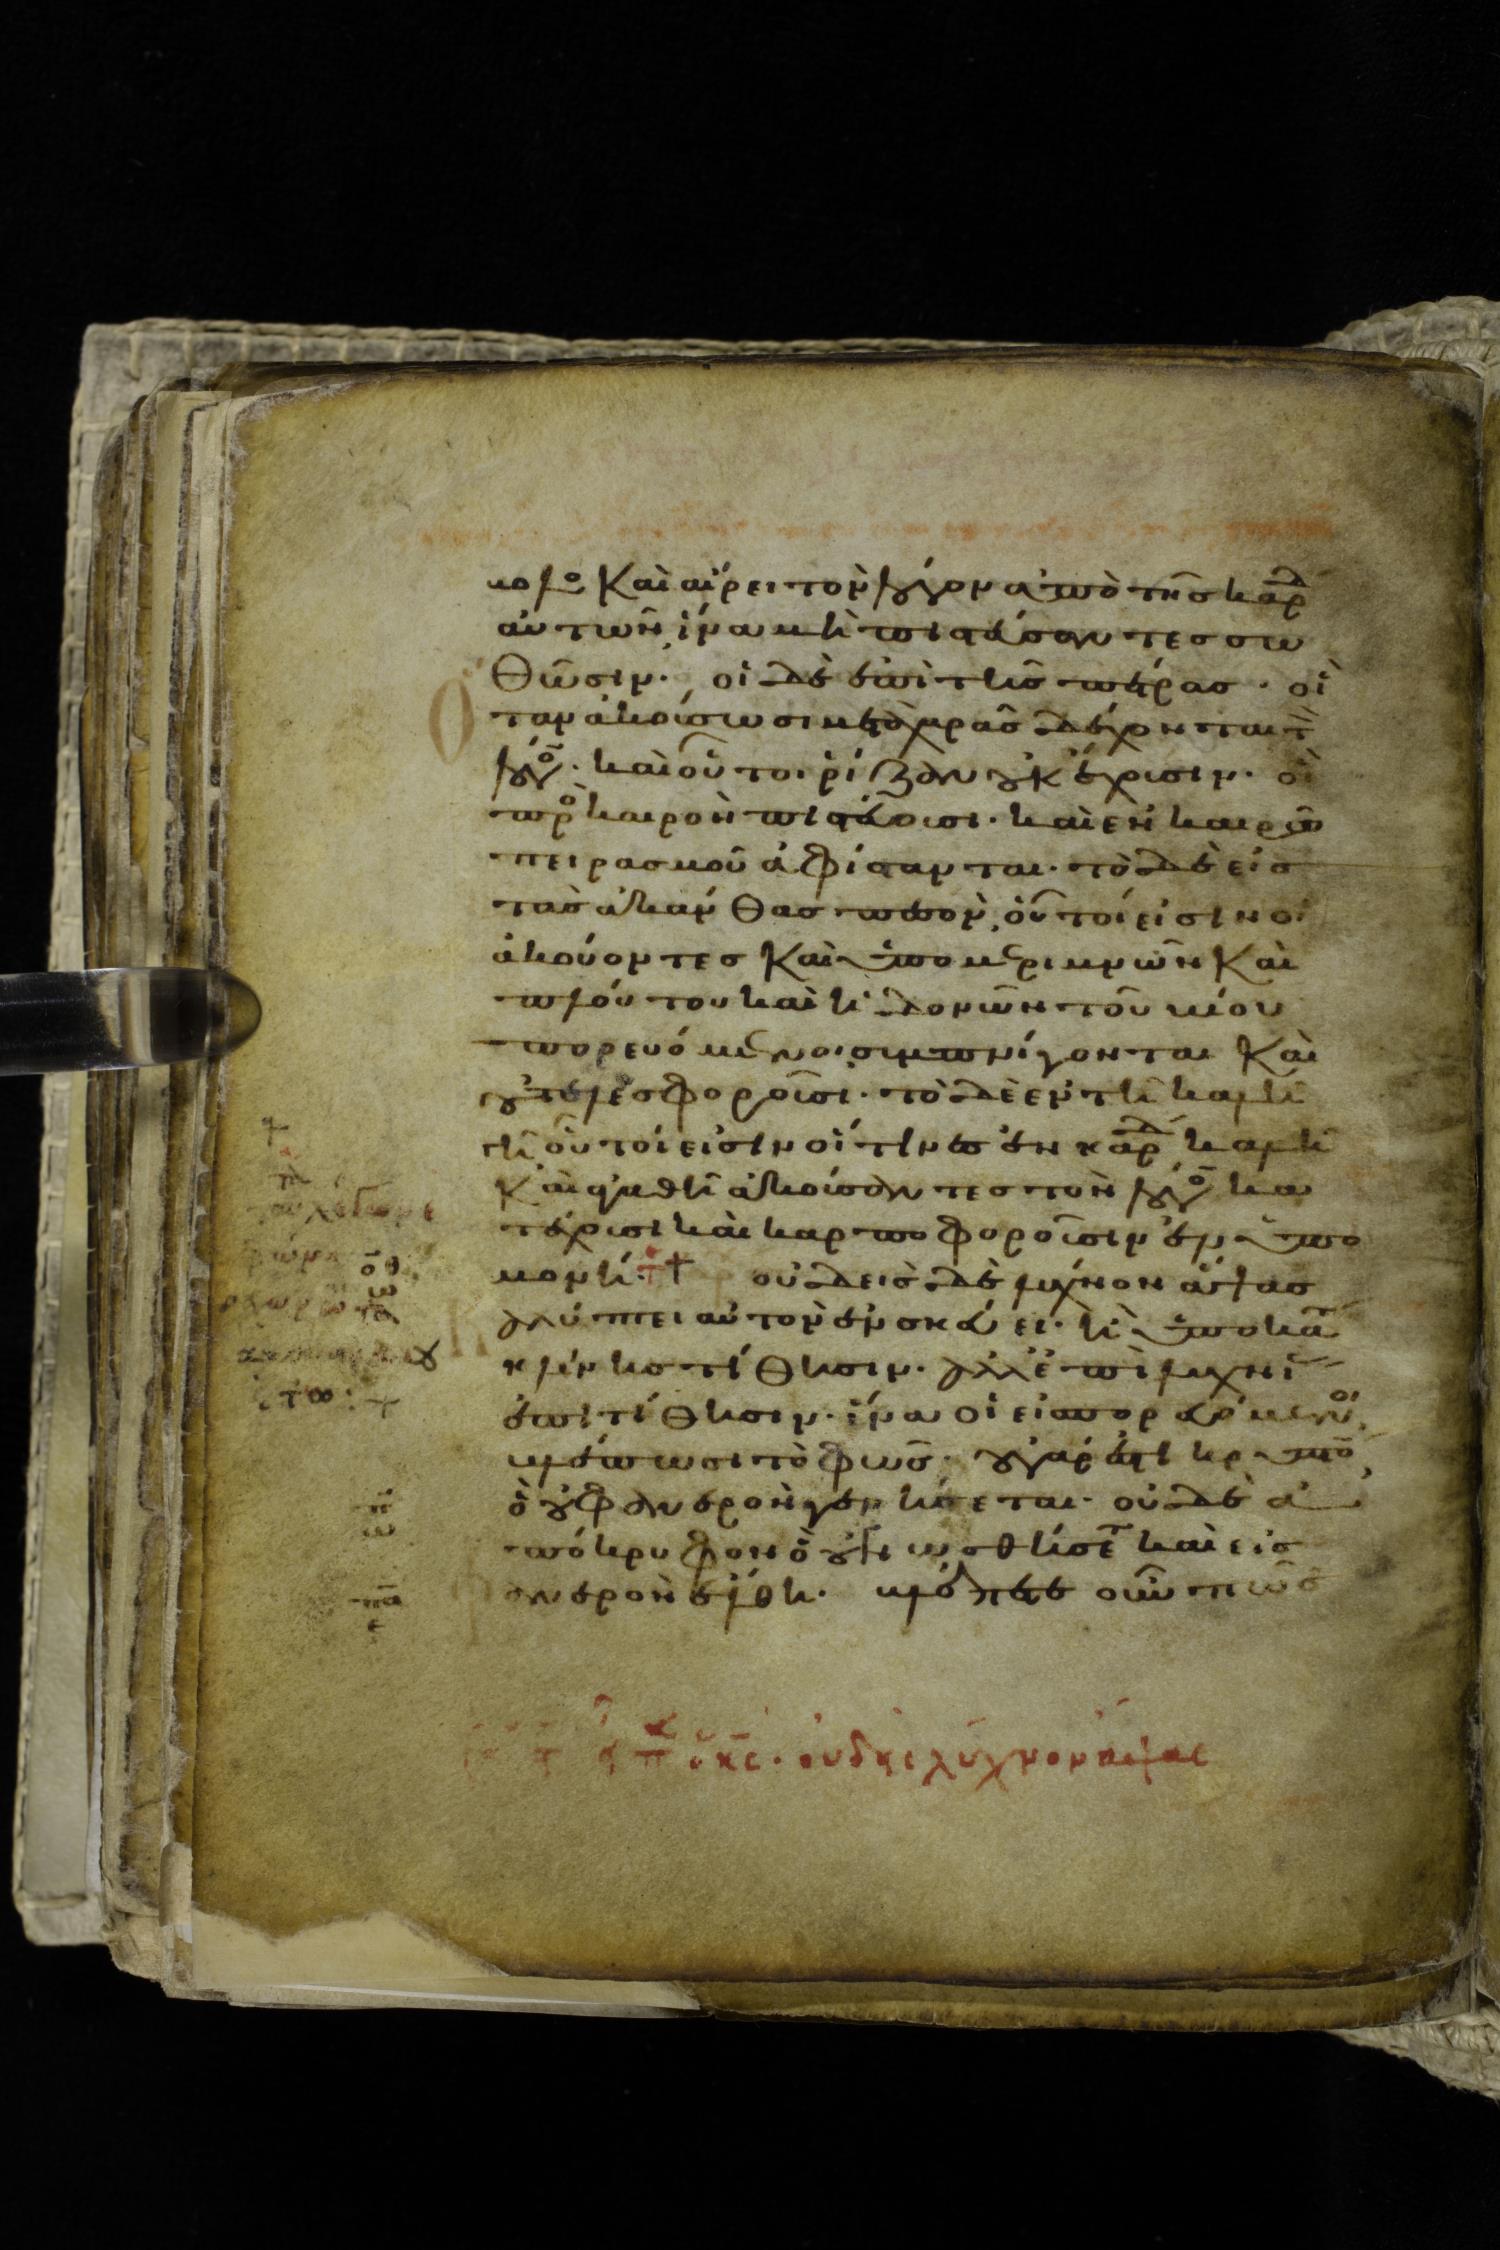 βολο καὶ αἴρει τὸν λόγον ἀπὸ τῆς καρδ
αὐτῶν, ἵνα μὴ πιστεύσαντες σω
θῶσιν. οἱ δὲ ἐπὶ τῆς πέτρας. οἳ
ταν ἀκούσωσι μετὰ χαρᾶς δέχονται τ
λόγο. καὶ οὗτοι ῥίζαν οὐκ ἔχουσιν. οἳ
πρὸ καιρὸν πιστεύουσι. καὶ ἐν καιρῶ
πειρασμοῦ ἀφίστανται. τὸ δὲ εἰς
τὰς ἀκάνθας πεσὸν, οὗτοί εἰσιν οἱ
ἀκούοντες καὶ ὑπὸ μεριμνῶν καὶ
πλούτου καὶ ἡδονῶν τοῦ βίου
πορευόμενοι συμπνίγονται καὶ
οὐ τελεσφοροῦσι. τὸ δὲ ἐν τῆ καλῆ
γῆ οὗτοί εἰσιν οἵτινες ἐν καρδ καλῆ
καὶ ἀγαθῆ ἀκούσαντες τὸν λόγο κα
τέχουσι καὶ καρποφοροῦσιν ἐν ὑπο
μονῆ. † οὐδεὶς δὲ λύχνον ἅψας
καλύπτει αὐτὸν ἐν σκεύει. ἢ ὑποκά
κλίνης τίθησιν. ἀλλ' ἐπὶ λυχνί
ἐπιτίθησιν. ἵνα οἱ εἰσπορευόμενοι
βλέπωσι τὸ φῶς. οὐ γάρ ἐστι κρυπτό
ὃ οὐ φανερὸν γενήσεται. οὐδὲ ἀ
πόκρυφον ὃ οὐ γνωσθήσετ καὶ εἰς
φανερὸν ἔλθη. βλέπετε οὖν πῶς
οὐδεὶς λύχνον ἅψας